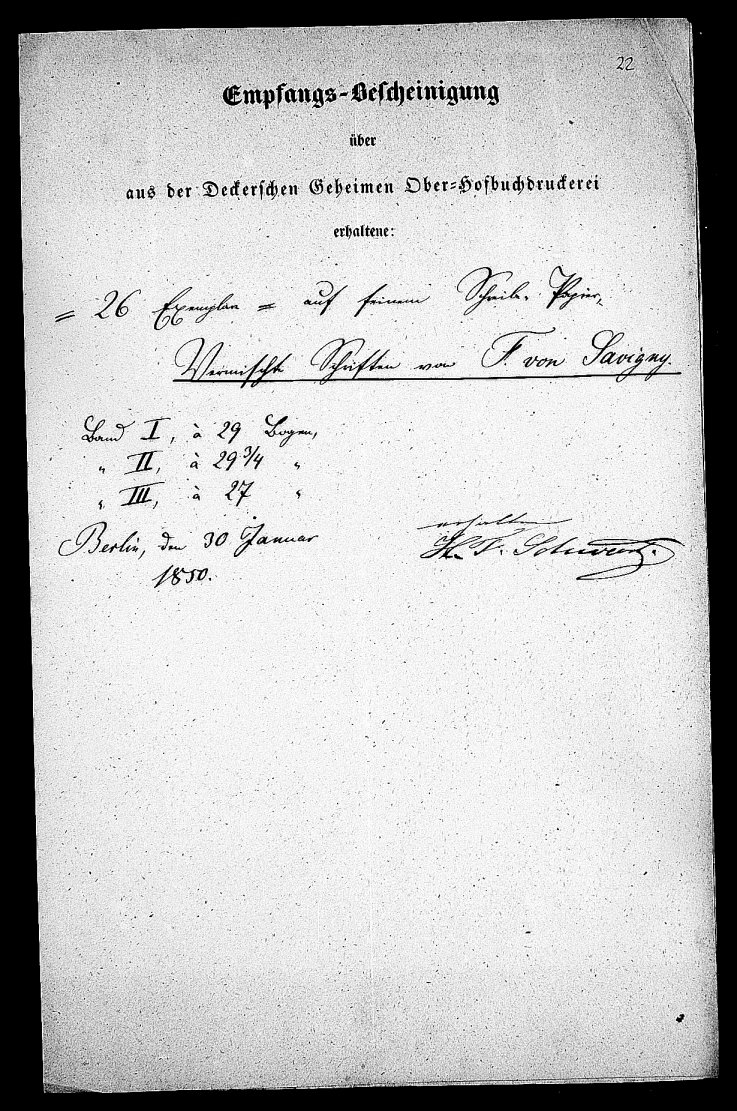 22
Empfangs-Bescheinigung
über
aus der Deckerschen Geheimen Ober-Hofbuchdruckerei
erhaltene:
= 26 Exemplare = auf feinem Schreib-Papier,
Vermischte Schriften von F. von Savigny.
Band I, à 29 Bogen,
" II, à 29 3/4 "
" III, à 27 "
Berlin, den 30 Januar
1850.
erhalten
H. F.